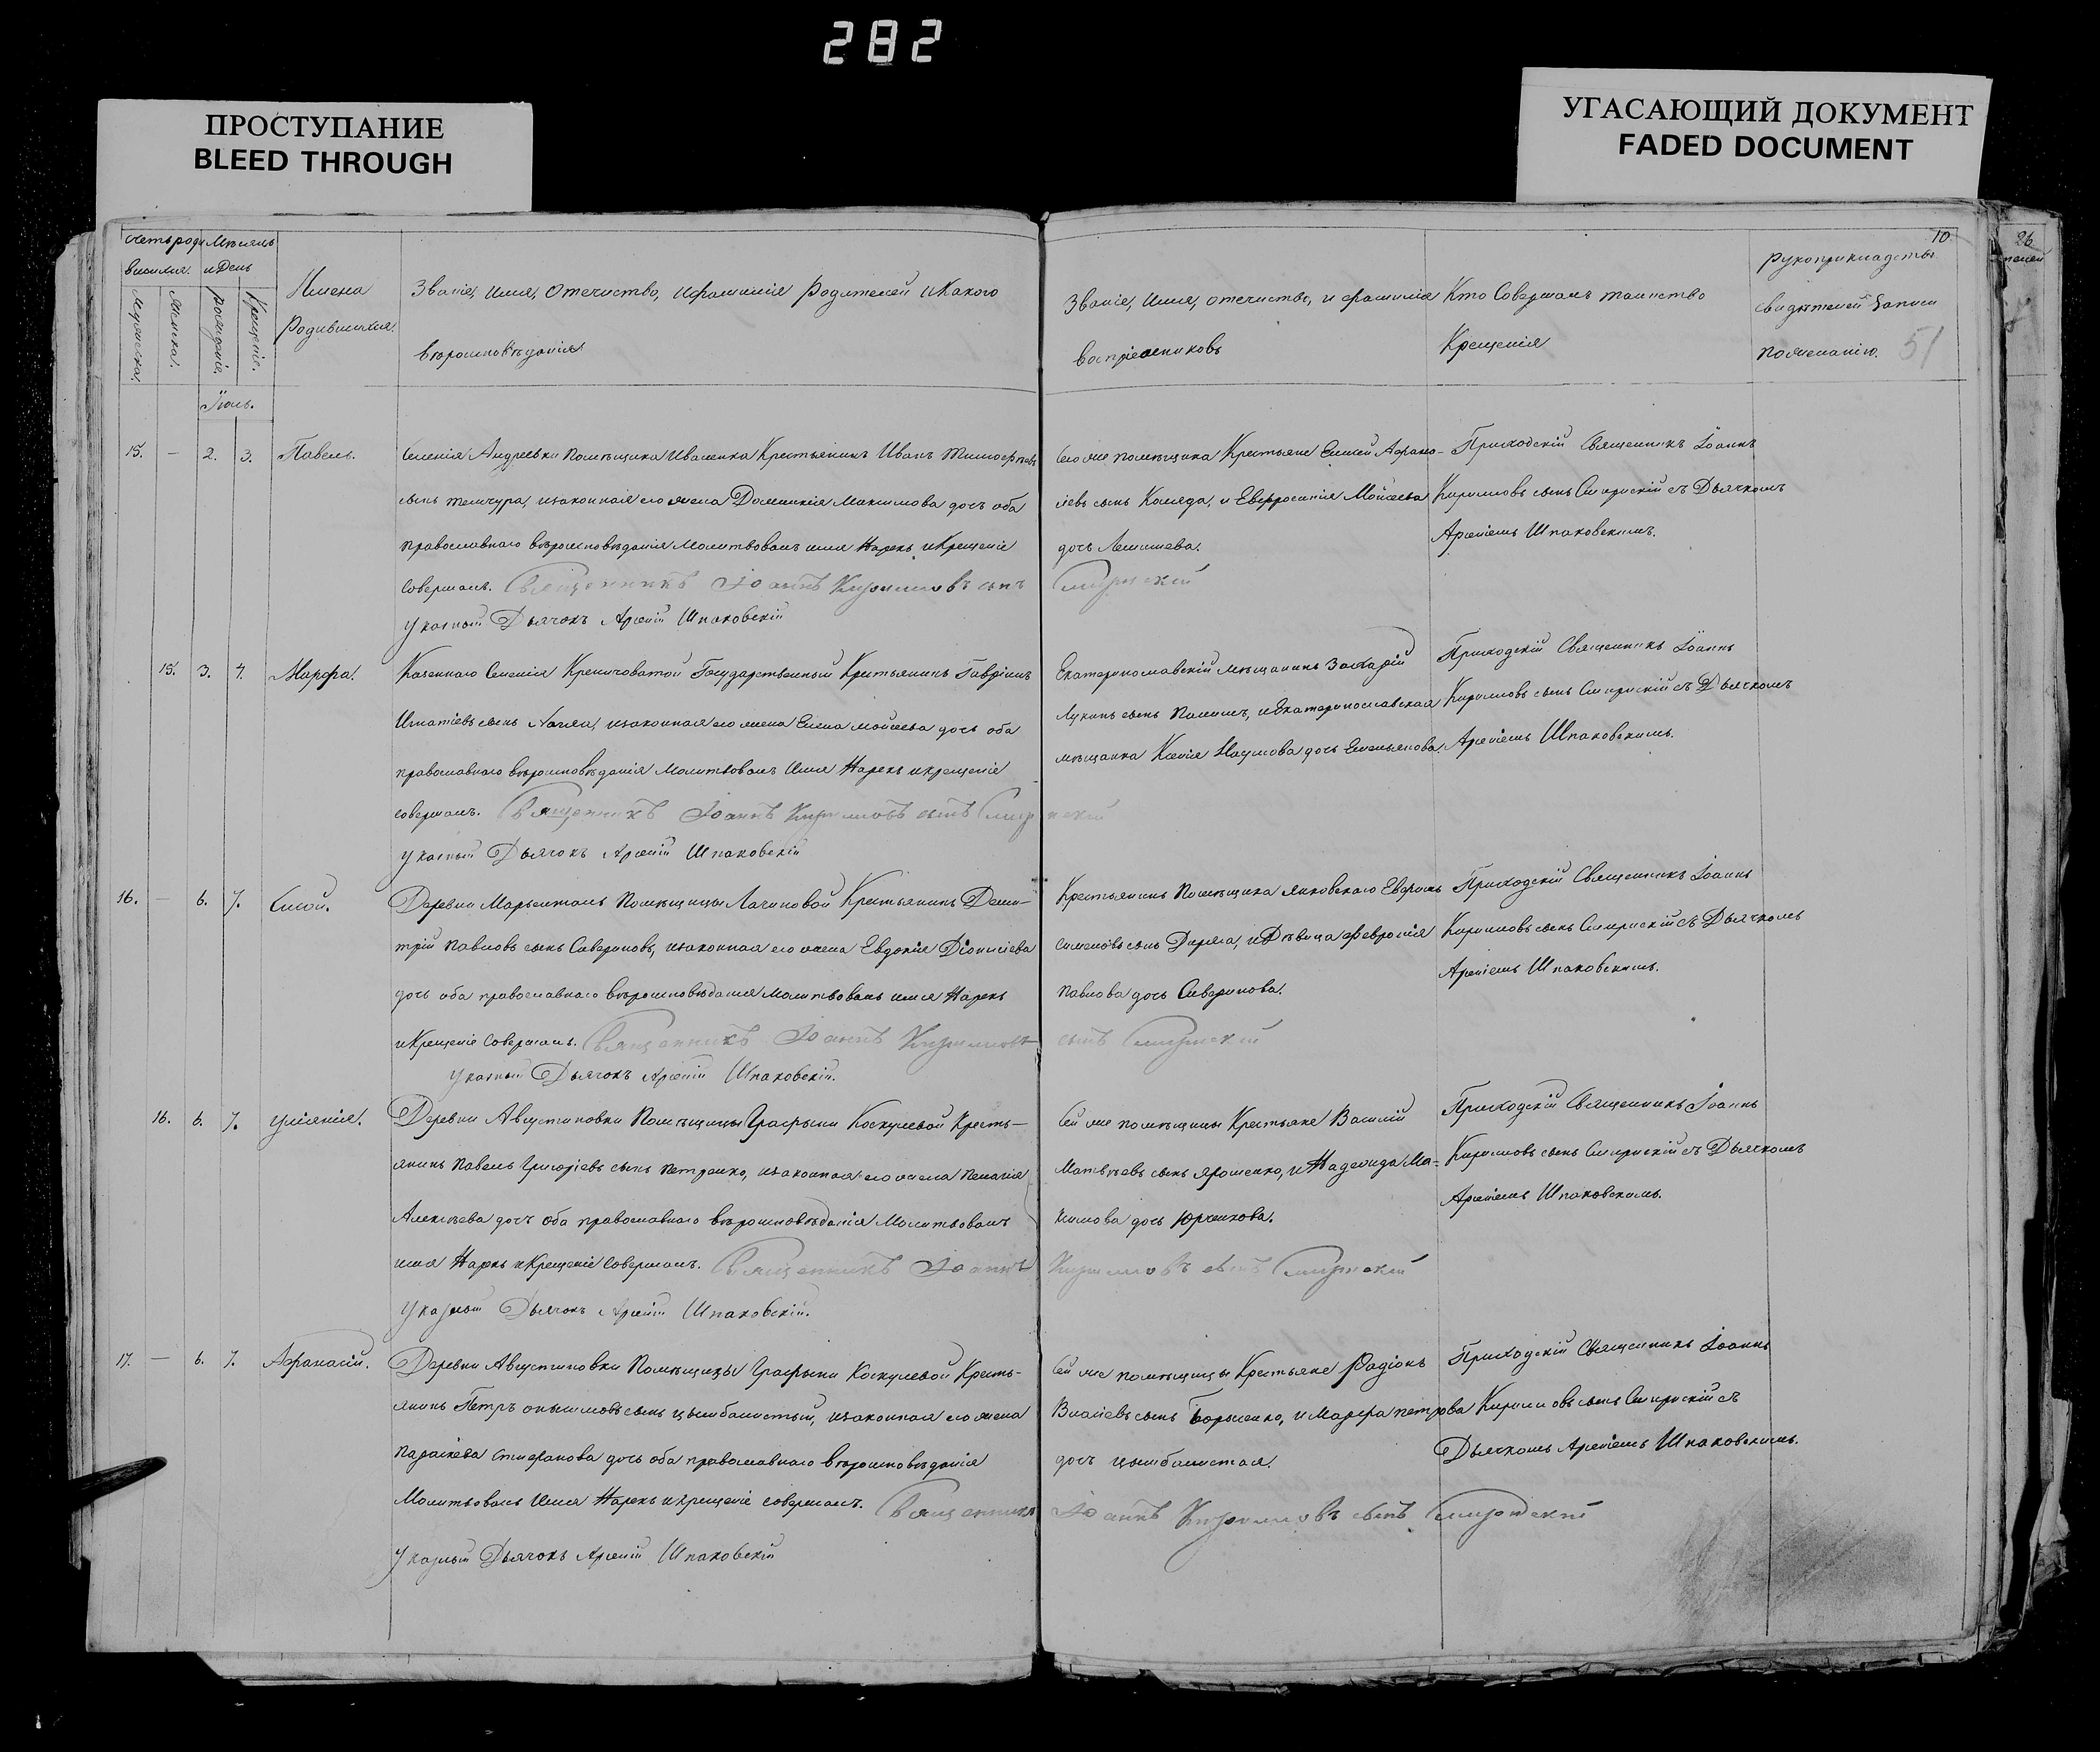 282
ПРОСТУПАНИЕ
BLEED THROUGH
УГАСАЮЩИЙ ДОКУМЕНТ
FADED DOCUMENT
10
26
51
Мѣсяцъ
и День
Имена
Родившихся.
Званіе, Имя, Отечество, и фамилія Родителей и Какого
вѣроисповѣданія
Званіе, Имя, отечество, и фамилія
воспріемниковъ
Кто Совершалъ таинство
Крещенія
рукоприкладство
свидѣтелей Записи
по желанію.
Іюль.
15. — 2. 3. Павелъ.
Селенія Андреевки Помѣщика Иваненка Крестьянинъ Иванъ
сынъ законная его жена Домникія Максимова дочь оба
православнаго вѣроисповѣданія Молитвовалъ имя Нарекъ и Крещеніе
совершалъ. Священникъ Іоаннъ Кирилловъ сынъ
Указный Дьячокъ Арсеній Шпаковскій
Сего же помѣщика Крестьяне
сынъ Коляда, и Евфросинія Мойсеева
дочь
Приходскій Священникъ Іоаннъ
Кирилловъ сынъ съ Дьячкомъ
Арсеніемъ Шпаковскимъ.
15. 3. 4. Марфа.
Казеннаго Селенія Государственный Крестьянинъ Гавріилъ
Игнатіевъ сынъ законная его жена Елена Мойсеева дочь оба
православнаго вѣроисповѣданія Молитвовалъ Имя Нарекъ и крещеніе
совершалъ. Священникъ Іоаннъ Кирилловъ сынъ
Указный Дьячокъ Арсеній Шпаковскій
Екатеринославскій мѣщанинъ Захарій
Лукинъ сынъ и Екатеринославская
мѣщанка Ксенія Наумова дочь Емельянова.
Приходскій Священникъ Іоаннъ
Кирилловъ сынъ съ Дьячкомъ
Арсеніемъ Шпаковскимъ.
16. — 6. 7. Сисой.
Деревни Помѣщицы Крестьянинъ Дими-
трій Павловъ сынъ Севериновъ, и законная его жена Евдокія Діонисіева
дочь оба православнаго вѣроисповѣданія Молитвовалъ имя Нарекъ
и Крещеніе Совершалъ. Священникъ Іоаннъ Кирилловъ
Указный Дьячокъ Арсеній Шпаковскій.
Крестьянинъ Помѣщика Янковскаго
Симеоновъ сынъ и Дѣвица Февронія
Павлова дочь Северинова.
сынъ
Приходскій Священникъ Іоаннъ
Кирилловъ сынъ съ Дьячкомъ
Арсеніемъ Шпаковскимъ.
16. 6. 7. Уліянія.
Деревни Августиновки Помѣщицы Графыни Кресть-
янинъ Павелъ Григоріевъ сынъ Петренко, и законная его жена Пелагія
Алексѣева дочь оба православнаго вѣроисповѣданія Молитвовалъ
имя Нарекъ и Крещеніе Совершалъ. Священникъ Іоаннъ
Указный Дьячокъ Арсеній Шпаковскій.
Сей же помѣщицы Крестьяне Василій
Матвѣевъ сынъ Ярошенко, и Надежда Ма-
ксимова дочь Юрченкова.
Кирилловъ сынъ
Приходскій Священникъ Іоаннъ
Кирилловъ сынъ съ Дьячкомъ
Арсеніемъ Шпаковскимъ.
17. — 6. 7. Афанасій.
Деревни Августиновки Помѣщицы Графыни Кресть-
янинъ Петръ сынъ Цымбалистый, и законная его жена
Параскева Стефанова дочь оба православнаго вѣроисповѣданія
Молитвовалъ Имя Нарекъ и крещеніе совершалъ. Священникъ
Указный Дьячокъ Арсеній Шпаковскій
Сей же помѣщицы Крестьяне Родіонъ
Власіевъ сынъ и Марфа Петрова
дочь Цымбалистая.
Іоаннъ Кирилловъ сынъ
Приходскій Священникъ Іоаннъ
Кирилловъ сынъ съ
Дьячкомъ Арсеніемъ Шпаковскимъ.